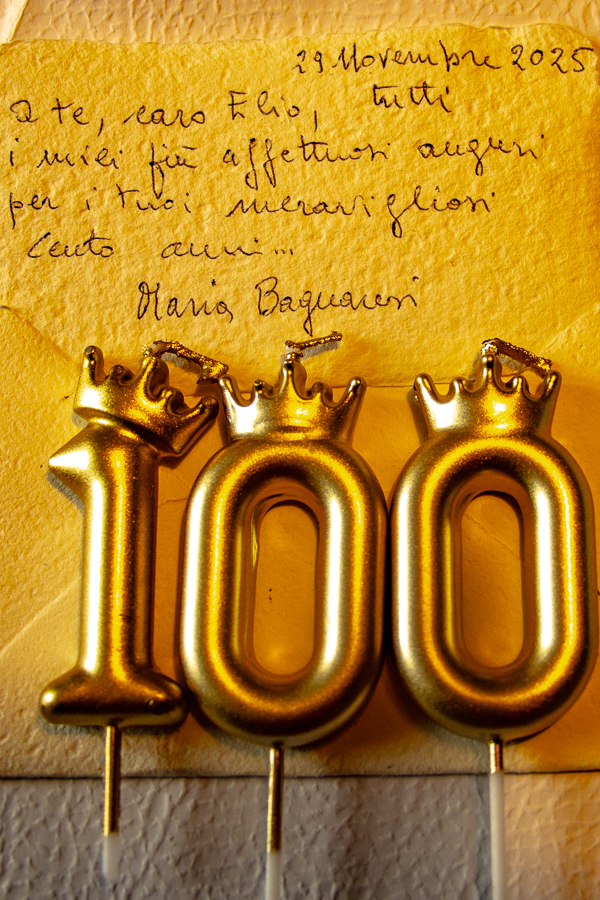 29 Novembre 2025
A te, caro Elio, tutti
i miei più affettuosi auguri
per i tuoi meravigliosi
Cento anni...
Maria Bagnaresi
100